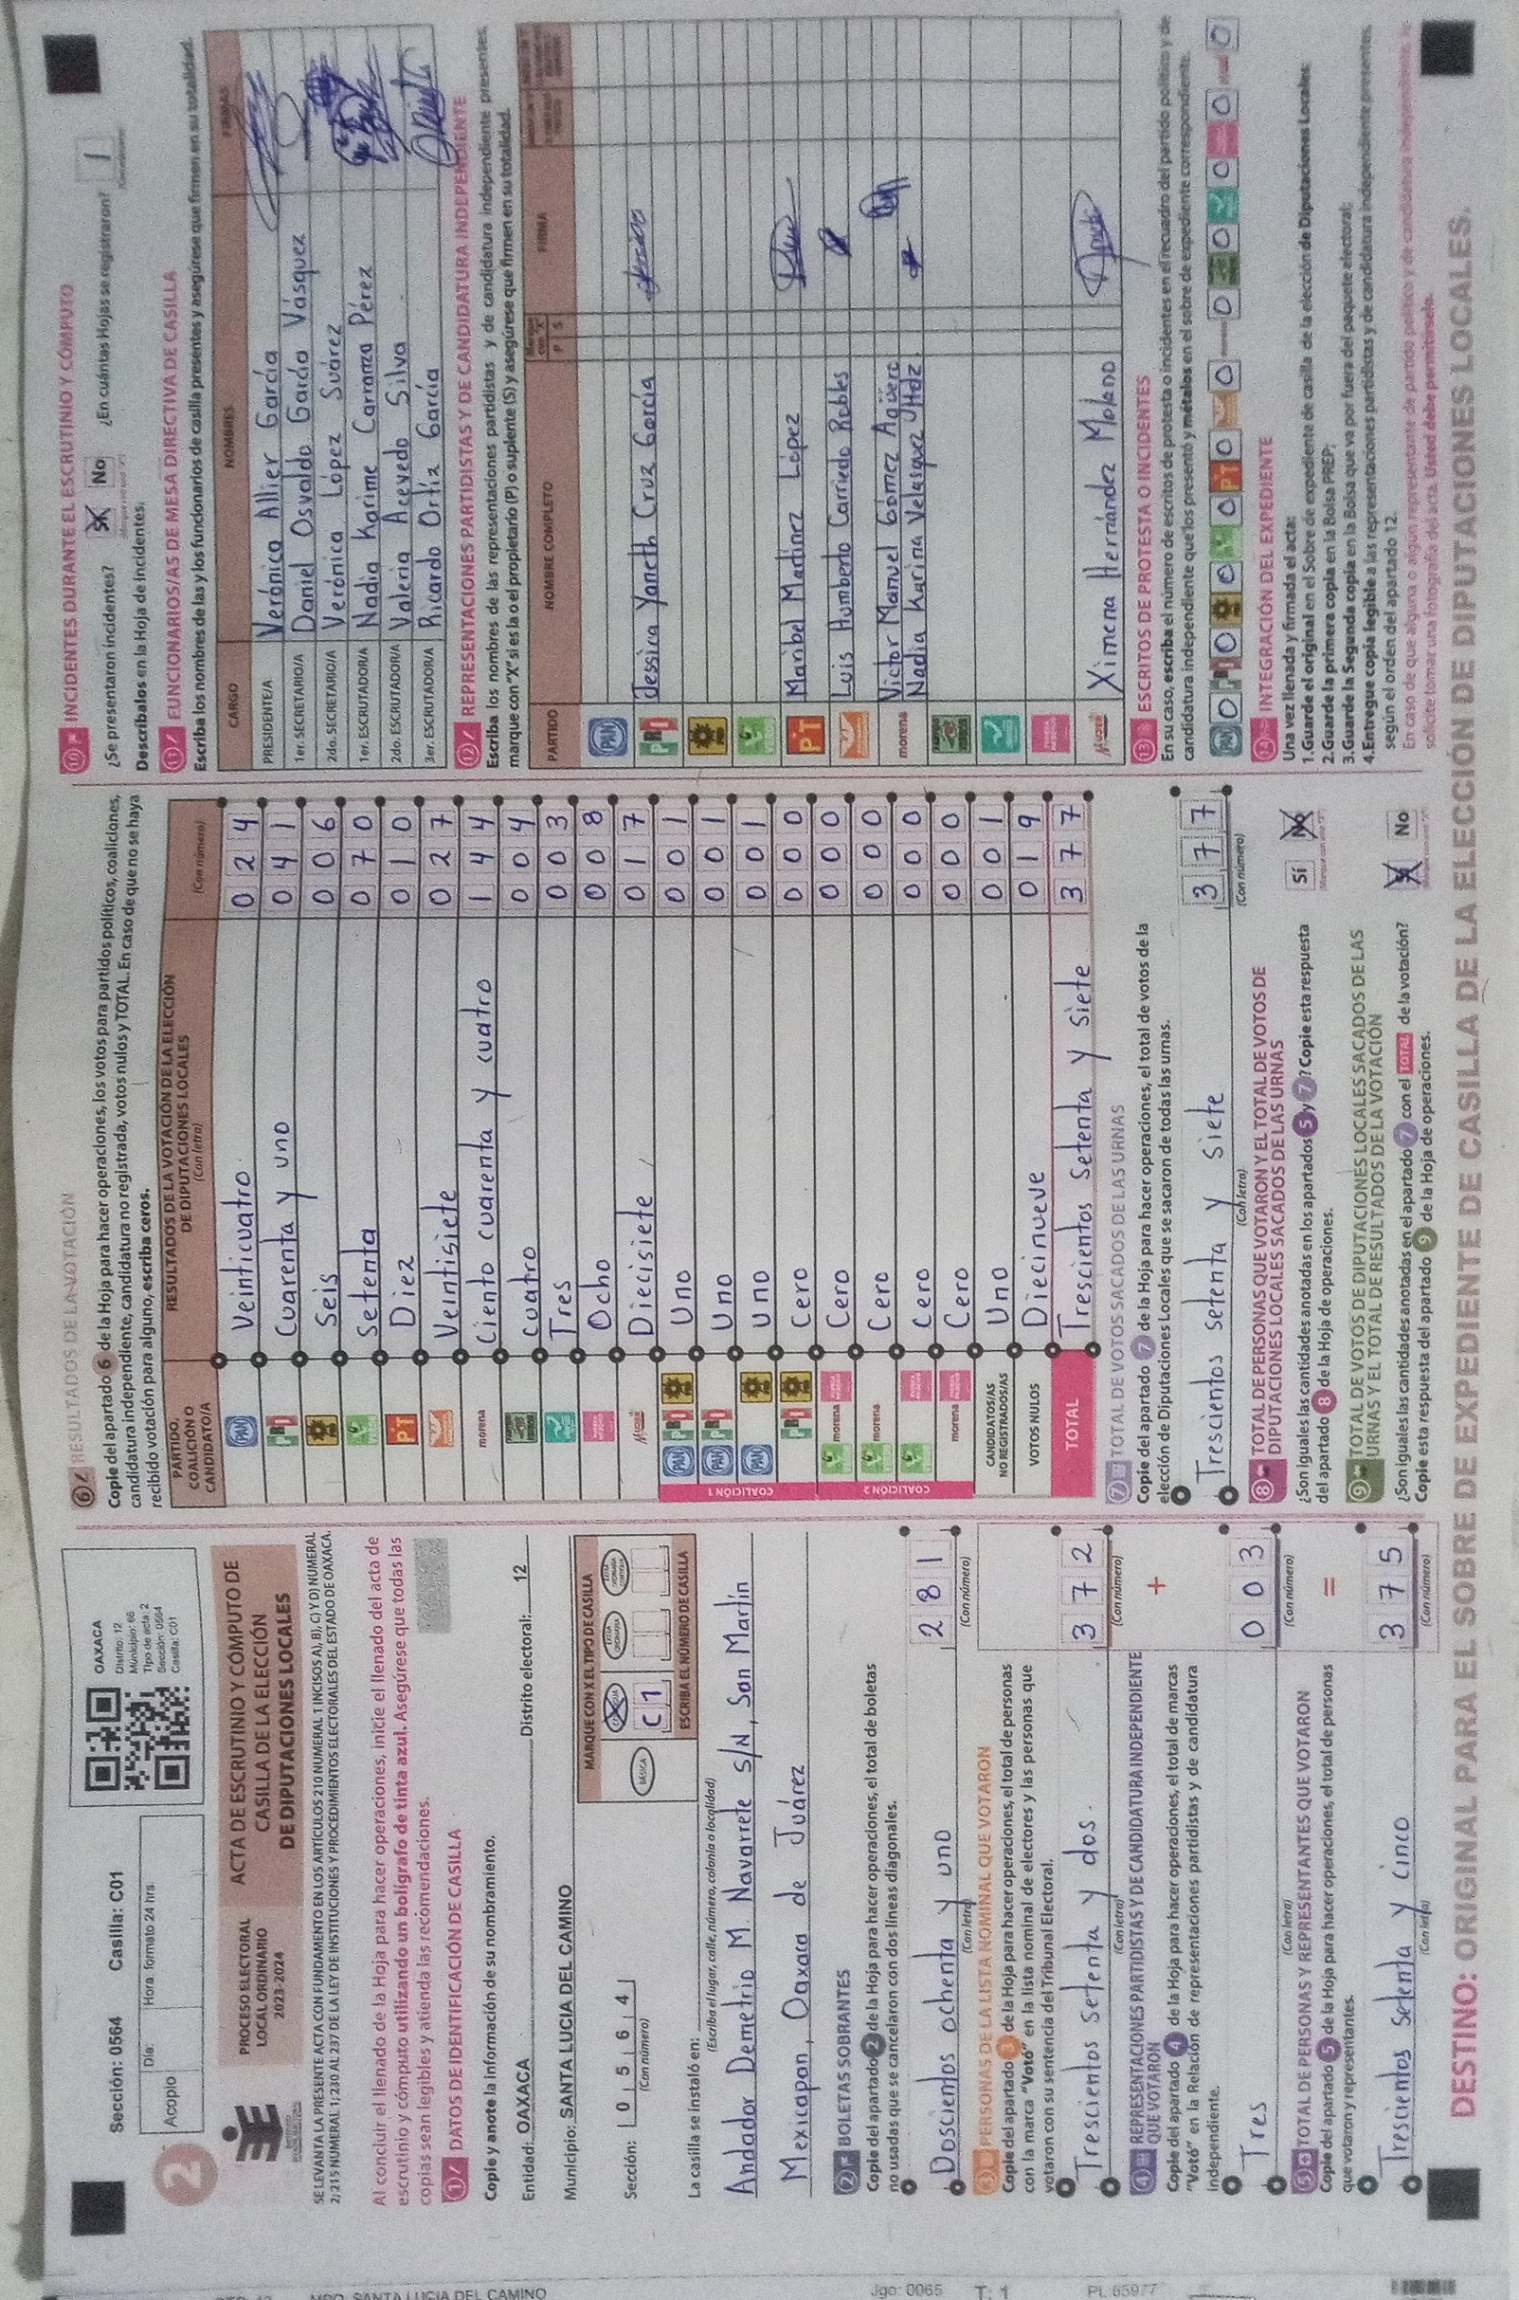 Sección: 0564 Casilla: C01
Día: Hora formato 24 hrs.
Acopio
OAXACA
Distrito: 12
Municipio: 66
Tipo de acta: 2
Sección: 0564
Casilla: C01
2
PROCESO ELECTORAL
LOCAL ORDINARIO
2023-2024
ACTA DE ESCRUTINIO Y CÓMPUTO DE
CASILLA DE LA ELECCIÓN
DE DIPUTACIONES LOCALES
SE LEVANTA LA PRESENTE ACTA CON FUNDAMENTO EN LOS ARTÍCULOS 210 NUMERAL 1 INCISOS A), B), C) Y D) NUMERAL
2; 215 NUMERAL 1; 230 AL 237 DE LA LEY DE INSTITUCIONES Y PROCEDIMIENTOS ELECTORALES DEL ESTADO DE OAXACA.
Al concluir el llenado de la Hoja para hacer operaciones, inicie el llenado del acta de
escrutinio y cómputo utilizando un bolígrafo de tinta azul. Asegúrese que todas las
copias sean legibles y atienda las recomendaciones.
1 DATOS DE IDENTIFICACIÓN DE CASILLA
Copie y anote la información de su nombramiento.
Entidad: OAXACA Distrito electoral: 12
Municipio: SANTA LUCIA DEL CAMINO
Sección: 0 5 6 4
(Con número)
MARQUE CON X EL TIPO DE CASILLA
BÁSICA
C 1
ESCRIBA EL NÚMERO DE CASILLA
La casilla se instaló en:
(Escriba el lugar, calle, número, colonia o localidad)
Andador Demetrio M. Navarrete S/N, San Martín
Mexicapan, Oaxaca de Juárez
2 BOLETAS SOBRANTES
Copie del apartado 2 de la Hoja para hacer operaciones, el total de boletas
no usadas que se cancelaron con dos líneas diagonales.
Doscientos ochenta y uno 2 8 1
(Con letra) (Con número)
3 PERSONAS DE LA LISTA NOMINAL QUE VOTARON
Copie del apartado 3 de la Hoja para hacer operaciones, el total de personas
con la marca "Votó" en la lista nominal de electores y las personas que
votaron con su sentencia del Tribunal Electoral.
Trescientos setenta y dos. 3 7 2
(Con letra) (Con número)
4 REPRESENTACIONES PARTIDISTAS Y DE CANDIDATURA INDEPENDIENTE
QUE VOTARON
+
Copie del apartado 4 de la Hoja para hacer operaciones, el total de marcas
"Votó" en la Relación de representaciones partidistas y de candidatura
independiente.
Tres 0 0 3
(Con letra) (Con número)
5 TOTAL DE PERSONAS Y REPRESENTANTES QUE VOTARON
=
Copie del apartado 5 de la Hoja para hacer operaciones, el total de personas
que votaron y representantes.
Trescientos setenta y cinco 3 7 5
(Con letra) (Con número)
6 RESULTADOS DE LA VOTACIÓN
Copie del apartado 6 de la Hoja para hacer operaciones, los votos para partidos políticos, coaliciones,
candidatura independiente, candidatura no registrada, votos nulos y TOTAL. En caso de que no se haya
recibido votación para alguno, escriba ceros.
PARTIDO,
COALICIÓN O
CANDIDATO/A
RESULTADOS DE LA VOTACIÓN DE LA ELECCIÓN
DE DIPUTACIONES LOCALES
(Con letra) (Con número)
PAN Veinticuatro 0 2 4
PRI Cuarenta y uno 0 4 1
PRD Seis 0 0 6
VERDE Setenta 0 7 0
PT Diez 0 1 0
Veintisiete 0 2 7
morena Ciento cuarenta y cuatro 1 4 4
Cuatro 0 0 4
Tres 0 0 3
Ocho 0 0 8
MUJER Diecisiete 0 1 7
COALICIÓN 1
PAN PRI PRD Uno 0 0 1
PAN PRI Uno 0 0 1
PAN PRD Uno 0 0 1
PRI PRD Cero 0 0 0
COALICIÓN 2
VERDE morena Cero 0 0 0
VERDE morena Cero 0 0 0
VERDE Cero 0 0 0
morena Cero 0 0 0
CANDIDATOS/AS
NO REGISTRADOS/AS Uno 0 0 1
VOTOS NULOS Diecinueve 0 1 9
TOTAL Trescientos setenta y siete 3 7 7
7 TOTAL DE VOTOS SACADOS DE LAS URNAS
Copie del apartado 7 de la Hoja para hacer operaciones, el total de votos de la
elección de Diputaciones Locales que se sacaron de todas las urnas.
Trescientos setenta y siete 3 7 7
(Con letra) (Con número)
8 TOTAL DE PERSONAS QUE VOTARON Y EL TOTAL DE VOTOS DE
DIPUTACIONES LOCALES SACADOS DE LAS URNAS
¿Son iguales las cantidades anotadas en los apartados 5 y 7? Copie esta respuesta
del apartado 8 de la Hoja de operaciones.
Sí No
9 TOTAL DE VOTOS DE DIPUTACIONES LOCALES SACADOS DE LAS
URNAS Y EL TOTAL DE RESULTADOS DE LA VOTACIÓN
¿Son iguales las cantidades anotadas en el apartado 7 con el TOTAL de la votación?
Copie esta respuesta del apartado 9 de la Hoja de operaciones.
Sí No
10 INCIDENTES DURANTE EL ESCRUTINIO Y CÓMPUTO
¿Se presentaron incidentes? Sí No ¿En cuántas Hojas se registraron? 1
Descríbalos en la Hoja de incidentes.
11 FUNCIONARIOS/AS DE MESA DIRECTIVA DE CASILLA
Escriba los nombres de las y los funcionarios de casilla presentes y asegúrese que firmen en su totalidad.
CARGO NOMBRES FIRMAS
PRESIDENTE/A Verónica Allier García
1er. SECRETARIO/A Daniel Osvaldo García Vásquez
2do. SECRETARIO/A Verónica López Suárez
1er. ESCRUTADOR/A Nadia Karime Carranza Pérez
2do. ESCRUTADOR/A Valeria Acevedo Silva
3er. ESCRUTADOR/A Ricardo Ortíz García
12 REPRESENTACIONES PARTIDISTAS Y DE CANDIDATURA INDEPENDIENTE
Escriba los nombres de las representaciones partidistas y de candidatura independiente presentes,
marque con "X" si es la o el propietario (P) o suplente (S) y asegúrese que firmen en su totalidad.
PARTIDO NOMBRE COMPLETO P S FIRMA
PAN
PRI Jessica Yaneth Cruz García
PRD
VERDE
PT Maribel Martínez López
Luis Humberto Carriedo Robles
morena Victor Manuel Gómez Agüero
Nadia Karina Velasquez Hdz.
MUJER Ximena Hernández Molano
13 ESCRITOS DE PROTESTA O INCIDENTES
En su caso, escriba el número de escritos de protesta o incidentes en el recuadro del partido político y de
candidatura independiente que los presentó y métalos en el sobre de expediente correspondiente.
PAN 0 PRI 0 0 0 PT 0 0 0 0 0 0 0
14 INTEGRACIÓN DEL EXPEDIENTE
Una vez llenada y firmada el acta:
1. Guarde el original en el Sobre de expediente de casilla de la elección de Diputaciones Locales;
2. Guarde la primera copia en la Bolsa PREP;
3. Guarde la Segunda copia en la Bolsa que va por fuera del paquete electoral;
4. Entregue copia legible a las representaciones partidistas y de candidatura independiente presentes,
según el orden del apartado 12.
En caso de que alguna o algún representante de partido político y de candidatura independiente le
solicite tomar una fotografía del acta. Usted debe permitírselo.
DESTINO: ORIGINAL PARA EL SOBRE DE EXPEDIENTE DE CASILLA DE LA ELECCIÓN DE DIPUTACIONES LOCALES.
SANTA LUCIA DEL CAMINO
Jgo: 0065
T: 1